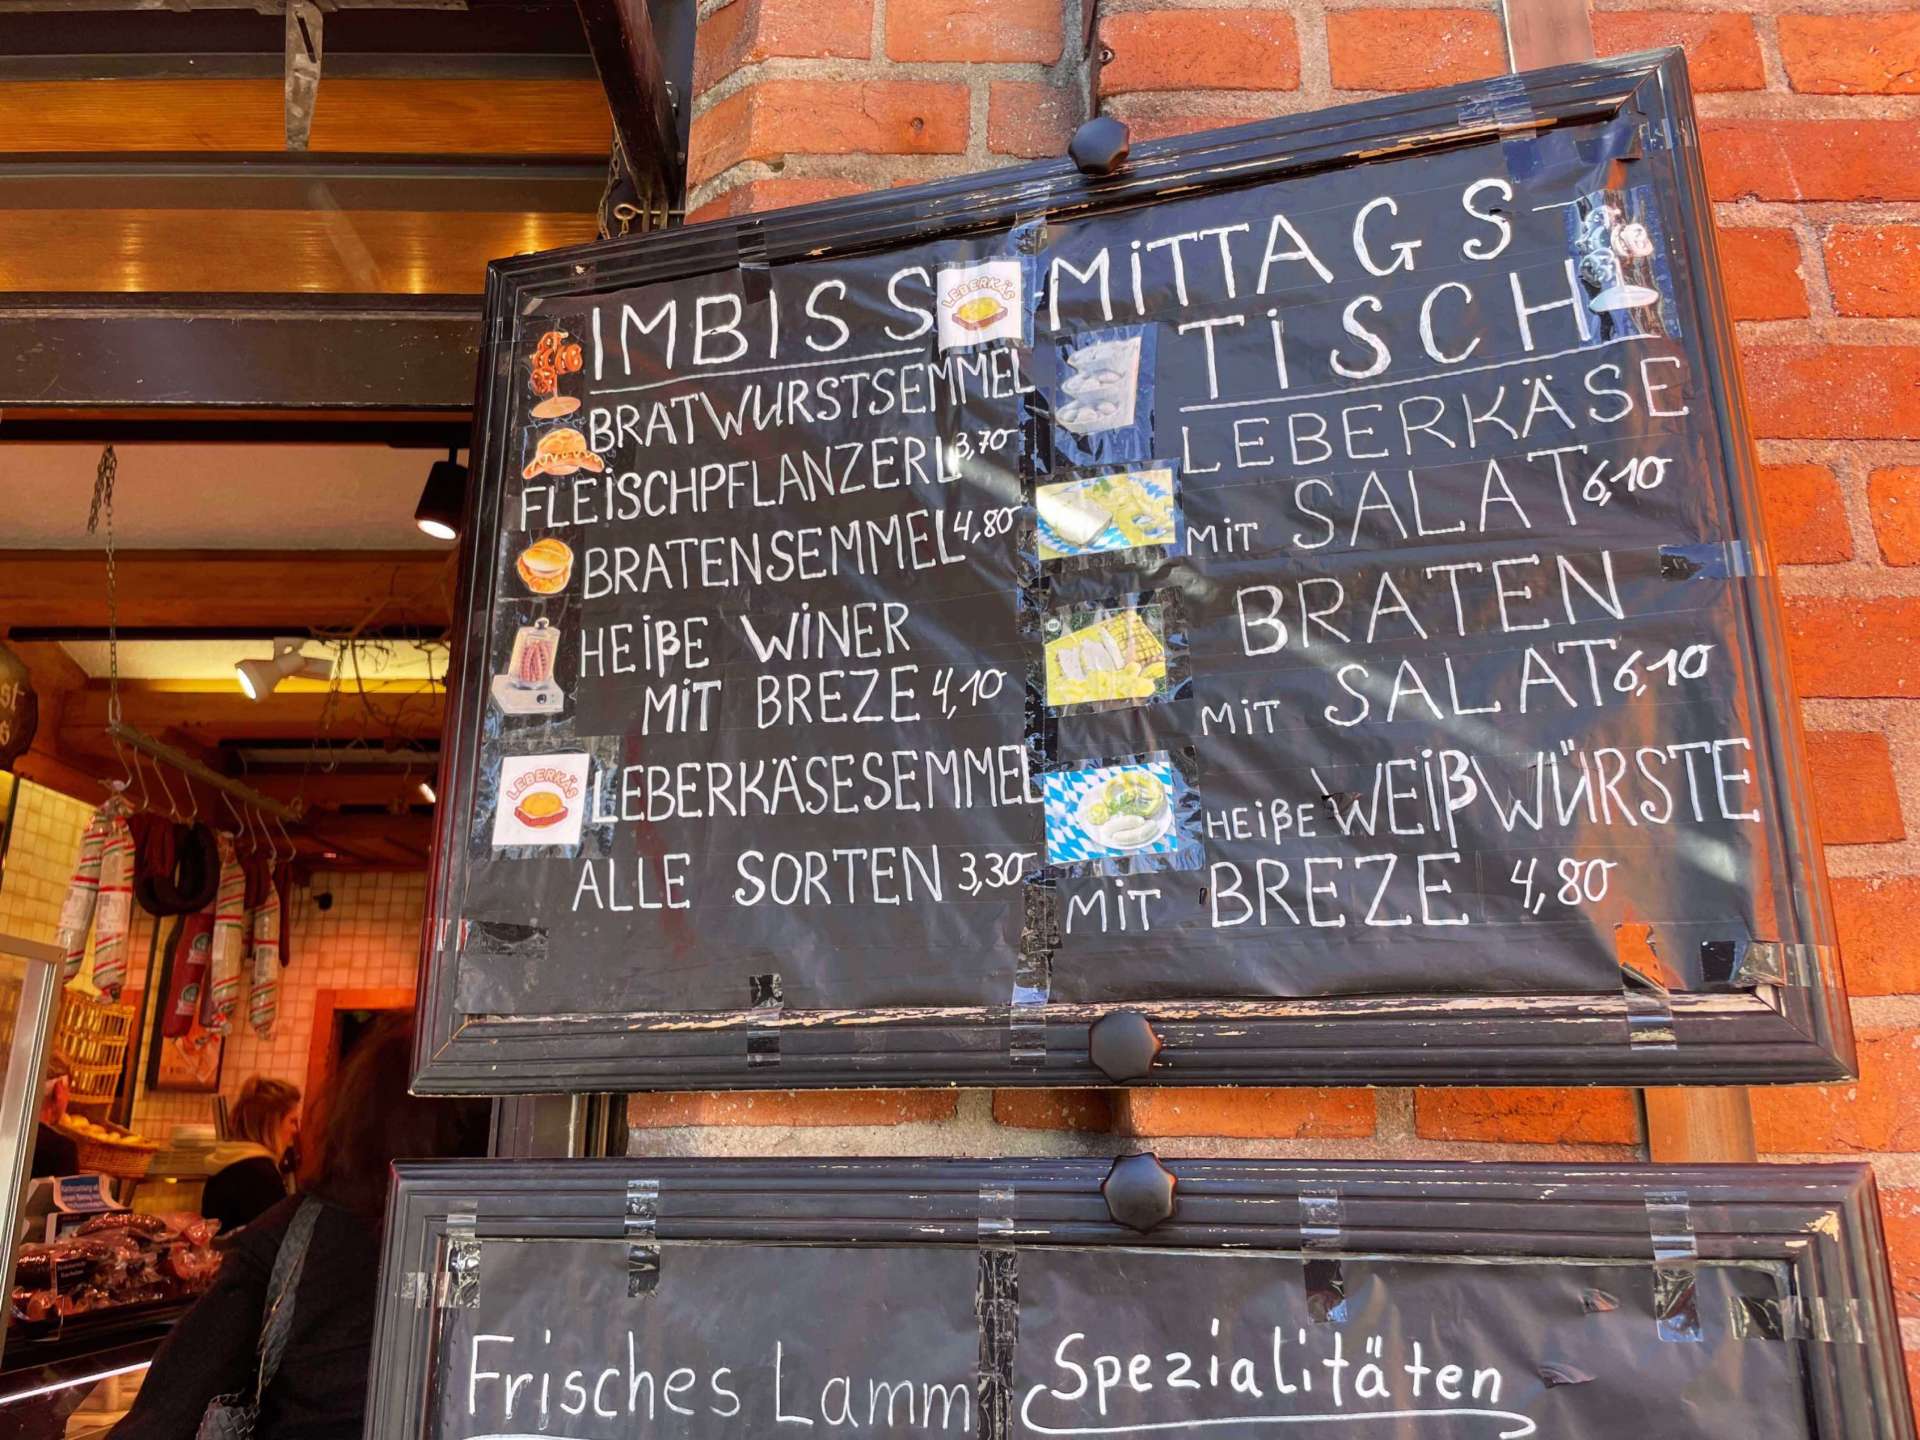 IMBISS
LEBERKÄS
BRATWURSTSEMMEL
FLEiSCHPFLANZERL 3,70
BRATENSEMMEL 4,80
HEIßE WiNER
MiT BREZE 4,10
LEBERKÄS
LEBERKÄSESEMMEL
ALLE SORTEN 3,30
MiTTAGS-
TiSCH
LEBERKÄSE
MiT SALAT 6,10
BRATEN
MiT SALAT 6,10
HEIßE WEIßWÜRSTE
MiT BREZE 4,80
Frisches Lamm
Spezialitäten